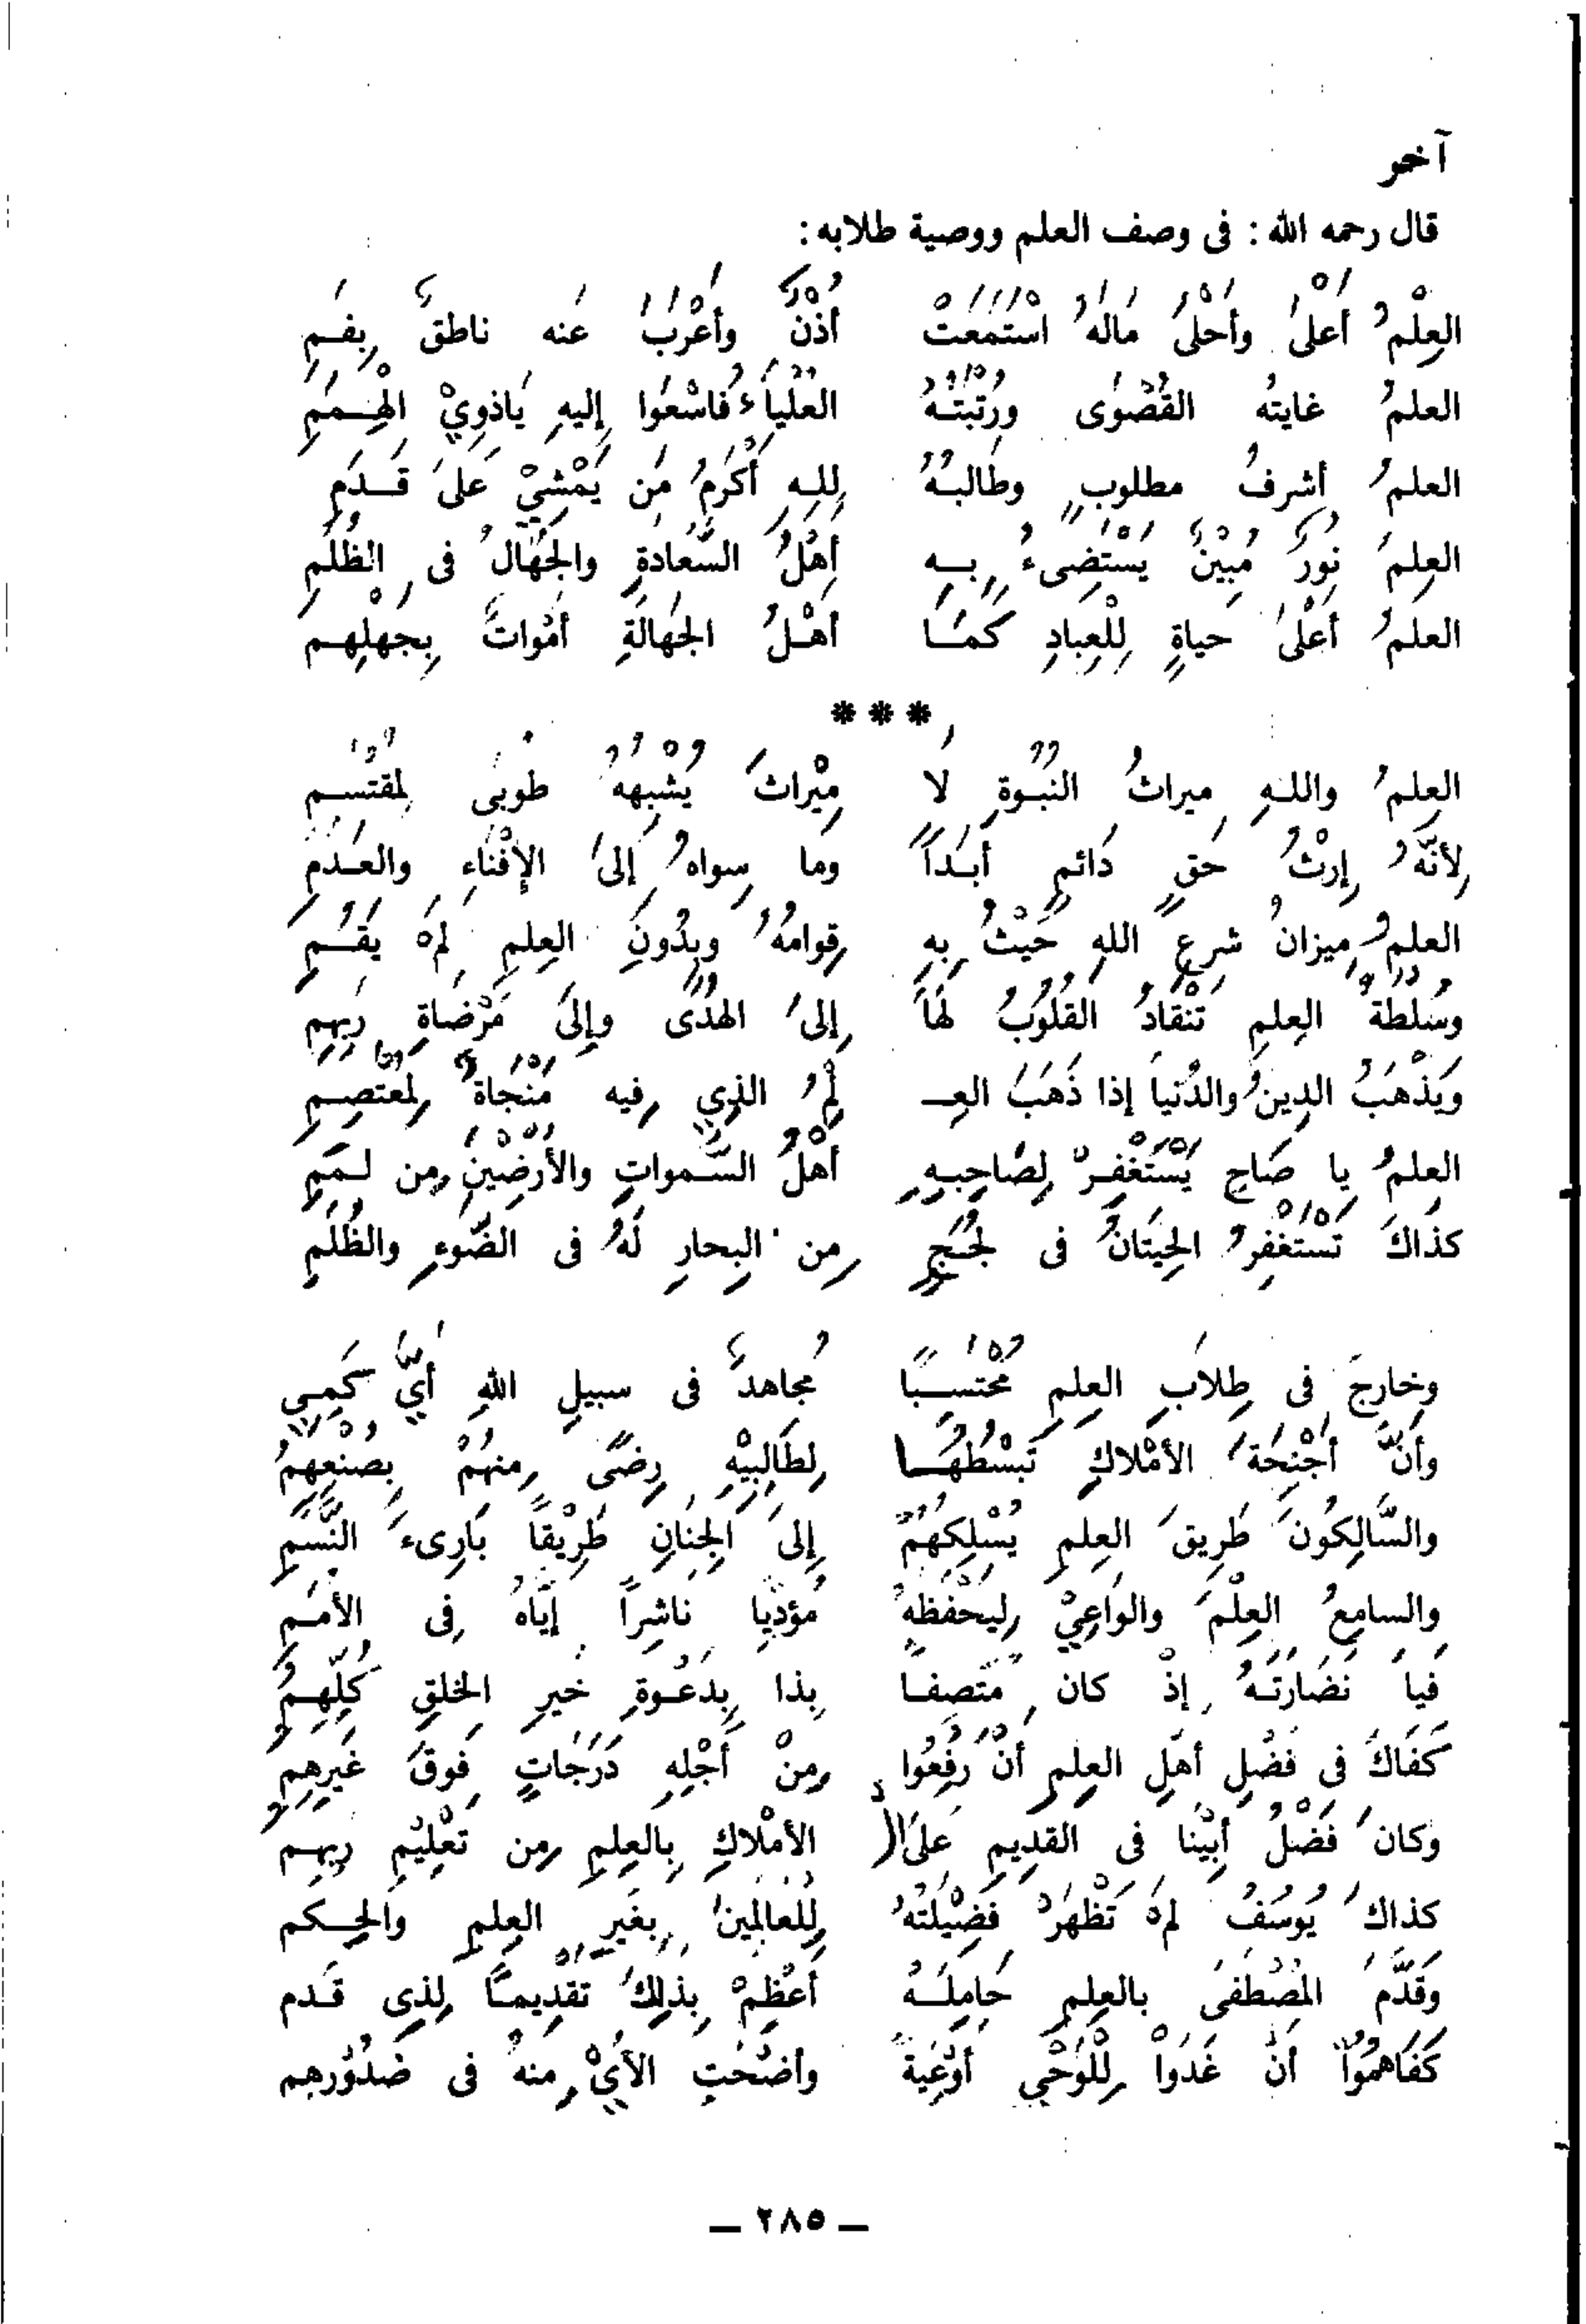 آخر
قال رحمه الله : فى وصف العلم ووصية طلابه :
العِلْمُ أَعلىٰ وأَحْلَىٰ مَالَهُ اسْتَمَعَتْ أُذْنٌ وأَعْرَبَ عَنه ناطقٌ بِفَمِ
العلمُ غايتهُ القُصْوَى ورُتْبَتُهُ العَلْيَاءُ فَاسْعَوا إِليهِ يَاذوِيْ الْهِمَمِ
العلمُ أشرفُ مطلوبٍ وطَالبُهُ لِلهِ أَكْرَمُ مَن يَمْشِيْ عَلىَ قَدَمِ
العِلمُ نورٌ مُبِيْنٌ يَسْتَضىءُ بِهِ أَهْلُ السَّعادةِ والجُهَّالُ فى الظُلَمِ
العلمُ أَعْلىٰ حياةٍ لِلْعِبادِ كَمَا أَهْلُ الجَهالَةِ أَمْواتٌ بِجهْلِهِم
***
العِلمُ واللهِ ميراثُ النُبُوةِ لَا مِيْراثَ يُشْبِههُ طوبىَ لِمقتَسِمِ
لِأَنَّهُ إِرْثُ حَقٍ دَائمٍ أَبَداً وَما سِواهُ إِلىَ الإِفْنَاءِ والعَدَمِ
العلمُ مِيزانُ شرعِ اللهِ حَيْثُ بِهِ قِوامُهُ وبِدُونِ العِلمِ لَمْ يَقُمِ
وسُلْطةُ العِلمِ تَنْقَادُ القُلُوْبُ لَهَا إِلىَ الهُدَى وإِلىَ مَرْضَاةِ رَبِهِمِ
وَيَذْهَبُ الدِينُ والدُنْياَ إِذا ذَهَبَ العِـ لْمُ الذِي فِيه مَنْجَاةٌ لِمُعْتَصِمِ
العِلمُ يا صَاحِ يَسْتَغْفِرْ لِصَاحِبِهِ أَهْلُ السَّمواتِ والأَرْضِيْنَ مِن لَمَمِ
كذَاكَ تَسْتَغْفِرُ الحِيتَانُ فى لُجَجٍ مِن البِحارِ لَهُ فى الضَّوءِ والظُلَمِ
وخارجٌ فى طِلابِ العِلمِ مُحْتَسِبًا مُجاهدٌ فى سبيلِ اللهِ أَيُّ كَمِيِ
وأَنَّ أَجْنِحَةَ الأَمْلاكِ تَبْسُطُهَا لِطَالِبِيْهِ رِضًى مِنهُمْ بِصُنْعِهِمُ
والسَّالِكُونَ طَرِيقَ العِلمِ يُسْلِكُهُمْ إِلىَ الجِنَانِ طَرِيْقاً بَارِىءُ النَّسَمِ
والسامِعُ العِلْمَ والوَاعِيْ لِيَحْفَظَهُ مُؤَدِّيا نَاشِراً إِيَّاهُ فِى الأُمَمِ
فَياَ نَضَارَتَهُ إِذْ كان مُتصِفا بِذا بِدَعْوةِ خَيرِ الخلقِ كُلِّهِمُ
كَفَاكَ فِى فَضْلِ أَهْلِ العِلمِ أَنْ رُفِعُوا مِنْ أَجْلِهِ دَرَجَاتٍ فَوقَ غَيرِهِمُ
وَكانَ فَضْلُ أَبِيْنا فِى القَدِيمِ عَلىَ الـ الأَمْلاكِ بِالعِلمِ مِن تَعْلِيْمِ رَبِهِم
كذاكَ يُوسُفُ لَمْ تَظْهَرْ فَضِيْلَتُهُ لِلْعالمِينَ بِغَيرِ العِلمِ وَالحِكم
وَقَدَّمَ المُصْطَفىَ بالعِلمِ حَامِلَهُ أَعْظِمْ بِذلِكَ تَقْدِيماً لِذِى قَدم
كَفَاهمُوا أَنْ غَدَوْا لِلْوَحْيِ أَوْعِيَةً وأَضْحَتِ الأَيُّ مِنهُ فى صُدُوْرِهِم
ــ ٢٨٥ ــ